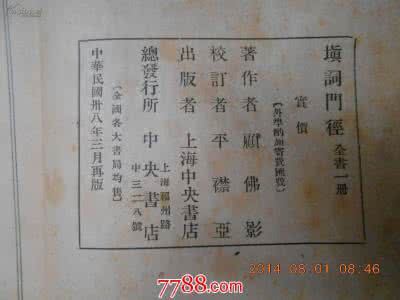 塡詞門徑 全書一冊
實價
【外埠酌加寄費匯費】
著作者 顧佛影
校訂者 平襟亞
出版者 上海中央書店
總發行所 中央書店
上海福州路
中三二八號
【全國各大書局均售】
中華民國卅八年三月再版
2014-08-01 08:46
7788.com